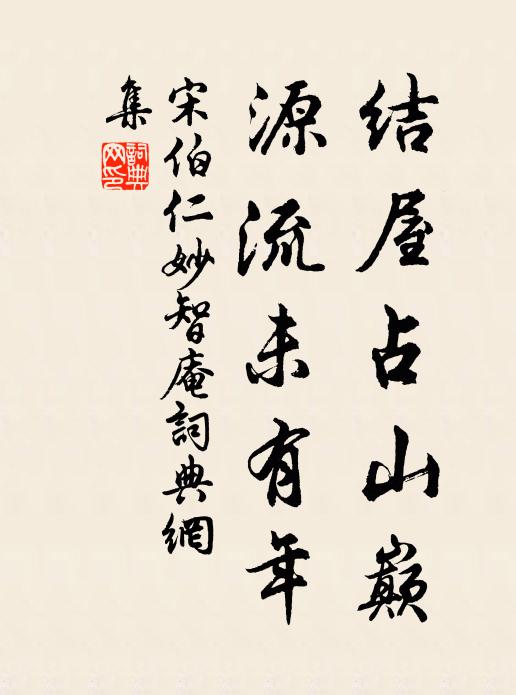 结屋占山巅
源流未有年
宋伯仁妙智庵詞典網
集
詞典网印